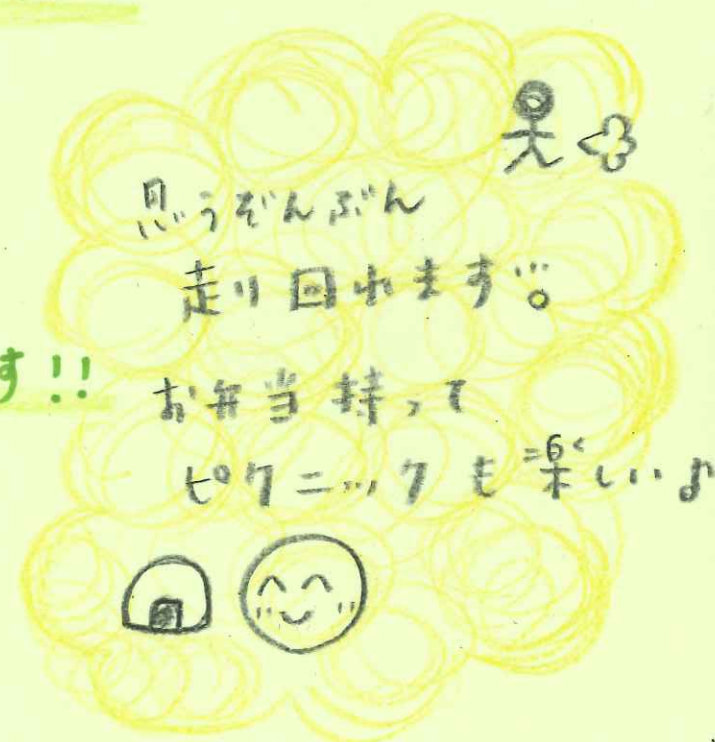 思うぞんぶん
走り回れます。
す!!
お弁当持って
ピクニックも楽しい♪